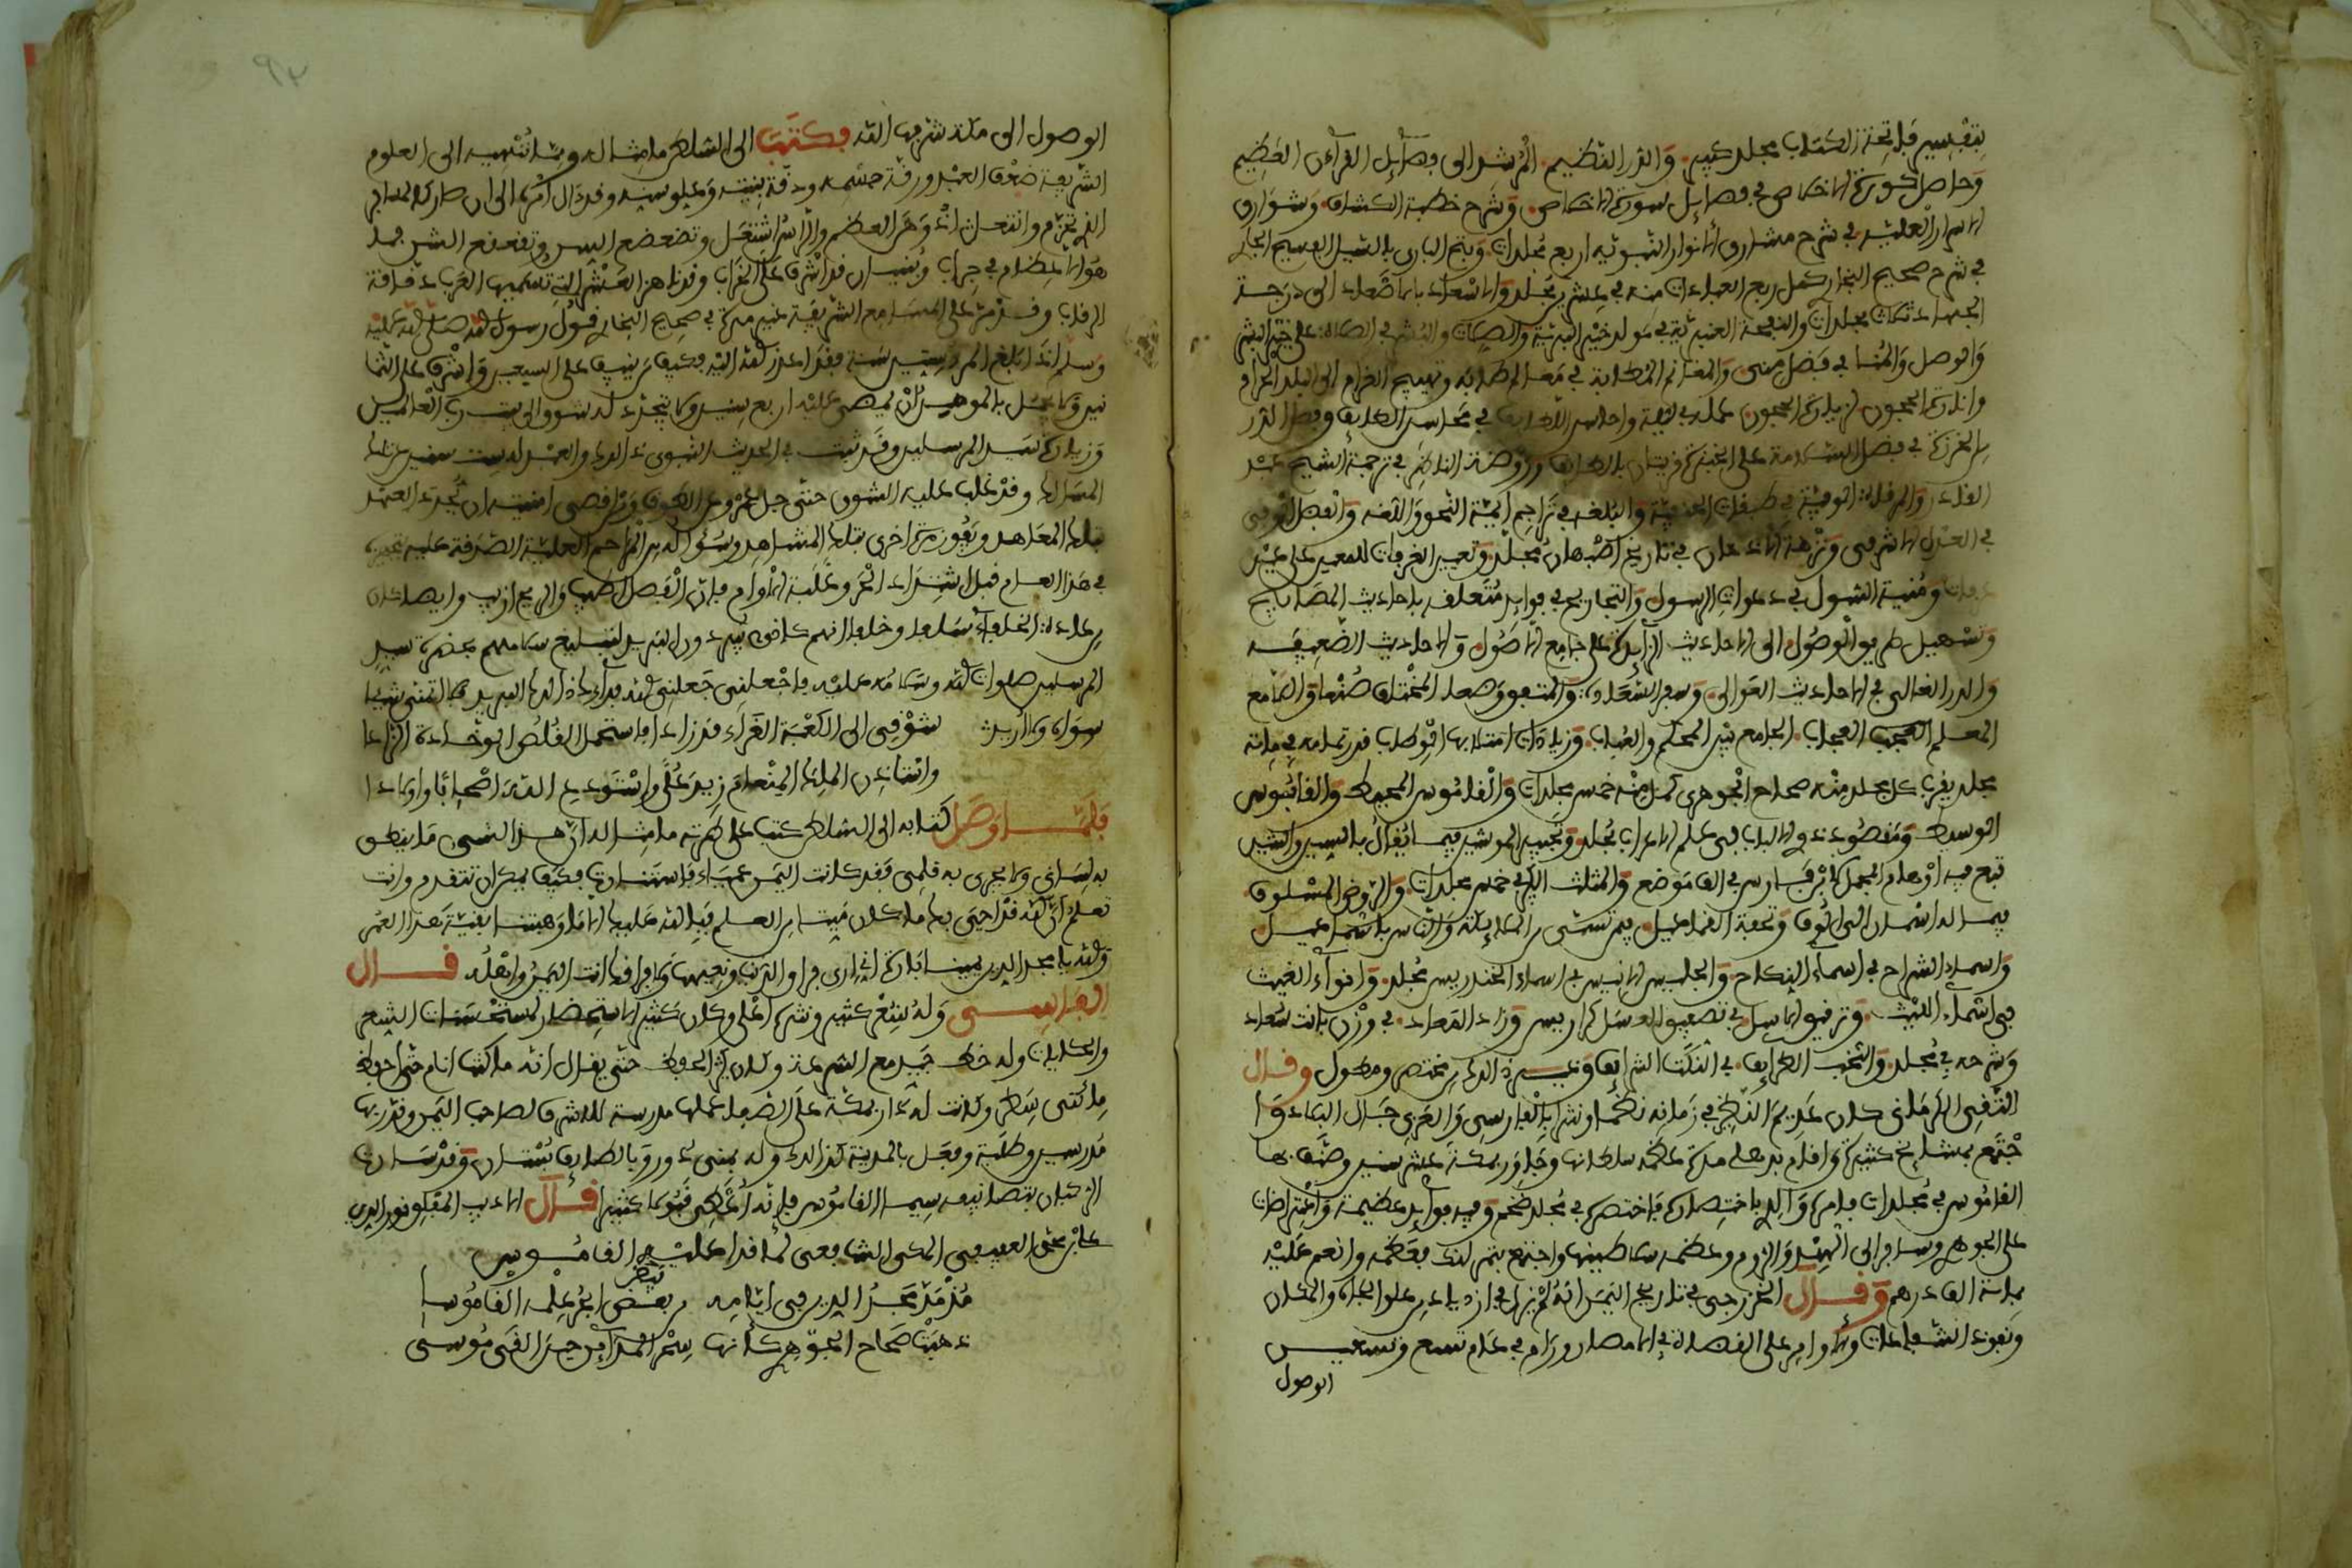 بتفسير فاتحة الكتاب مجلد كبير والدر النظيم المرشد الى فضائل القرءان العظيم
وحاصل كورة الاخلاص في فضايل سورة الاخلاص وشرح خطبة الكشاف وشوارق
الاسرار العلية في شرح مشارق الانوار النبوية اربع مجلدات وفتح الباري بالسيل الفسيح الجار
في شرح صحيح البخار كمل ربع العبادات منه في عشرين مجلد والاسعاد بالاصعاد الى درجة
الجهاد ثلاث مجلدات والنفحة العنبرية في مولد خير البرية والصلات والبشر في الصلاة على خير البشر
والوصل والمنا في فضل منى والمغانم المطابة في معالم طابة وتهييج الغرام الى البلد الحرام
واثارة الحجون لزيارة الحجون عمله في ليلة واحاسن اللطايف في محاسن الطايف وفصل الدر
من الخرزة في فضل السلامة على الخبزة قريتان بالطايف وروضة الناظر في ترجمة الشيخ عبد
القادر والمرقاة الوفية في طبقات الحنفية والبلغة في تراجم ايمة النحو واللغه والفضل الوفي
في العدل الاشرفي ونزهة الاذهان في تاريخ اصبهان مجلد وتعيين الغرفات للمعين على عين
عرفات ومنية السول في دعوات الرسول والتجاريح في فوايد متعلقه باحاديث المصابيح
وتسهيل طريق الوصول الى الاحاديث الزايدة على جامع الاصول والاحاديث الضعيفه
والدر الغالي في الاحاديث العوالي وسفر السعادة والمتفق وضعا المختلف صنعا واللامع
المعلم العجب العجاب الجامع بين المحكم والعباب وزيادات امتلا بها الوطاب قدر تمامه في ماية
مجلد يقرب كل مجلد منه صحاح الجوهري كمل منه خمس مجلدات والقاموس المحيط والقابوس
الوسيط ومقصود ذوي الالباب في علم الاعراب مجلد وتحبير الموشين فيما يقال بالسين والشين
تتبع فيه اوهام المجمل لابن فارس في الف موضع والمثلث الكبير في خمس مجلدات والروض المسلوف
فيما له اسمان الى الوف وتحفة القماعيل فيمن تسمى من الملايكة والناس باسماعيل
واسماء السراح في اسماء النكاح والجليس الانيس في اسماء الخندريس مجلد وانواء الغيث
في اسماء الليث وترقيق الاسل في تصفيق العسل كراريس وزاد المعاد في وزن بانت سعاد
وشرحه في مجلد والنخب الطرايف في النكت الشرايف وغير ذلك من مختصر ومطول وقال
التقي الكرماني كان عديم النظير في زمانه نظما ونثرا بالفارسي والعربي جال البلاد وا
جتمع بمشايخ كثيرة واقام بدهلي مدة عظمه سلطانها وجاور بمكة عشر سنين وصنف بها
القاموس في مجلدات فامره والدي باختصاره فاختصره في مجلد ضخم وفيه فوايد عظيمة واعتراضات
على الجوهر وسافر الى الهند والروم وعظمه سلاطينها واجتمع بتمر لنك فعظمه وانعم عليه
بماية الف درهم وقال الخزرجي في تاريخ اليمن انه لم يزل في ازدياد من علو الجاه والمكان
ونفوذ الشفاعات والاوامر على القضاة في الامصار ورام في عام تسع وتسعين
الوصول
الوصول الى مكة شرفها الله فكتب الى السلطان ما مثاله ومما تنهيه الى العلوم
الشريفة ضعف العبد ورقة جسمه ودقة بنيته وعلو سنه وقد ءال امره الى ان صار كالمسافر
الذي تحزم وانتعل اذ وهن العظم والراس اشتعل وتضعضع السن وتقعقع الشن فما
هو الا عظام في جراب وبنيان قد اشرف على الخراب وقد ناهز العشر التي تسميها العرب دقاقة
الرقاب وقد مر على المسامع الشريفة غير مرة في صحيح البخار قول رسول الله صلى الله عليه
وسلم اذا بلغ المرء ستين سنة فقد اعذر الله اليه فكيف من نيف على السبعين واشرف على الثما
نين ولا يجمل بالمومن ان يمضي عليه اربع سنين ولا يتجدد له شوق الى بيت رب العالمين
وزيارة سيد المرسلين وقد ثبت في الحديث النبوي ذلك والعبد له ست سنين عن تلك
المسالك وقد غلب عليه الشوق حتى جل عمره عن الطوق ومن اقصى امنيته ان يجدد العهد
بتلك المعاهد ويفوز مرة اخرى بتلك المشاهد وسوله من المراحم العلية الصدقة عليه بتجهيزه
في هذا العام قبل اشتداد الحر وغلبة الاوام فان الفصل اطيب والريح ازيب وايضا كان
من عادة الخلفاء سلفا وخلفا انهم كانوا يبردون البريد لتبليغ سلامهم بحضرة سيد
المرسلين صلوات الله وسلامه عليه فاجعلني جعلني الله فداءك ذلك البريد فلا اتمنى شيئا
سواه ولا اريد شوقي الى الكعبة الغراء قد زادا فاستحمل القلص الوخادة الزادا
واستاذن الملك المنعام زيد على واستودع الله اصحابا واولادا
فلما وصل كتابه الى السلطان كتب على طرته ما مثاله ان هذا الشيء ما ينطق
به لساني ولا يجري به قلمي فقد كانت اليمن عمياء فاستنارت فكيف يمكن ان نتقدم وانت
تعلم ان الله قد احيى بك ما كان ميتا من العلم فبالله عليك الا ما وهبتنا بقية هذا العمر
والله يا مجد الدين يمينا بارة اني ارى فراق الدنيا ونعيمها ولا فراقك انت اليمن واهله قال
الفاسي وله شعر كثير ونثره اعلى وكان كثير الاستحضار لمستحسنات الشعر
والحكايات وله خط جيد مع السرعة وكان كثير الحفظ حتى يقال انه ما كنت انام حتى احفظ
مائتي سطر وكانت له دار بمكة على الصفا عملها مدرسة للاشرف صاحب اليمن وقرر بها
مدرسين وطلبة وفعل بالمدينة كذلك وله بمنى دور وبالطايف بستان وقد سارت
الركبان بتصانيفه سيما القاموس فانه اعطي قبولا كثيرا قال الاديب المفلق نور الدين
علي بن محمد العفيف المكي الشافعي لما قرا عليه القاموس
مذ مد مجد الدين في ايامه من بعض ابحر علمه القاموسا
ذهبت صحاح الجوهري كانها سحر المداين حين القى موسى